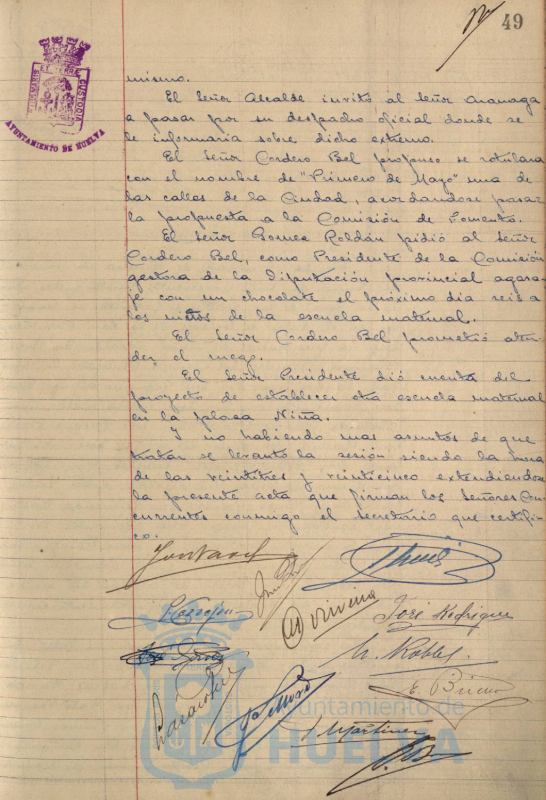 49
AYUNTAMIENTO DE HUELVA
mismo.
El Señor Alcalde invitó al Señor
a pasar por su despacho oficial donde se
le informaria sobre dicho extremo.
El Señor Cordero Bel propuso se rotulara
con el nombre de "Primero de Mayo" una de
las calles de la Ciudad, acordandose pasar
la propuesta a la Comisión de Fomento.
El Señor Roldán pidió al Señor
Cordero Bel, como Presidente de la Comisión
gestora de la Diputación provincial agasa-
je con un chocolate el próximo dia seis a
los niños de la escuela maternal.
El Señor Cordero Bel prometió aten-
der el ruego.
El Señor Presidente dió cuenta del
proyecto de establecer otra escuela maternal
en la plaza Niña.
Y no habiendo mas asuntos de que
tratar se levanto la sesión siendo la hora
de las veintitres y veinticinco extendiendose
la presente acta que firman los señores con-
currentes conmigo el secretario que certifi-
co.
José Rodriguez
Robles
Martinez
Ayuntamiento de
HUELVA